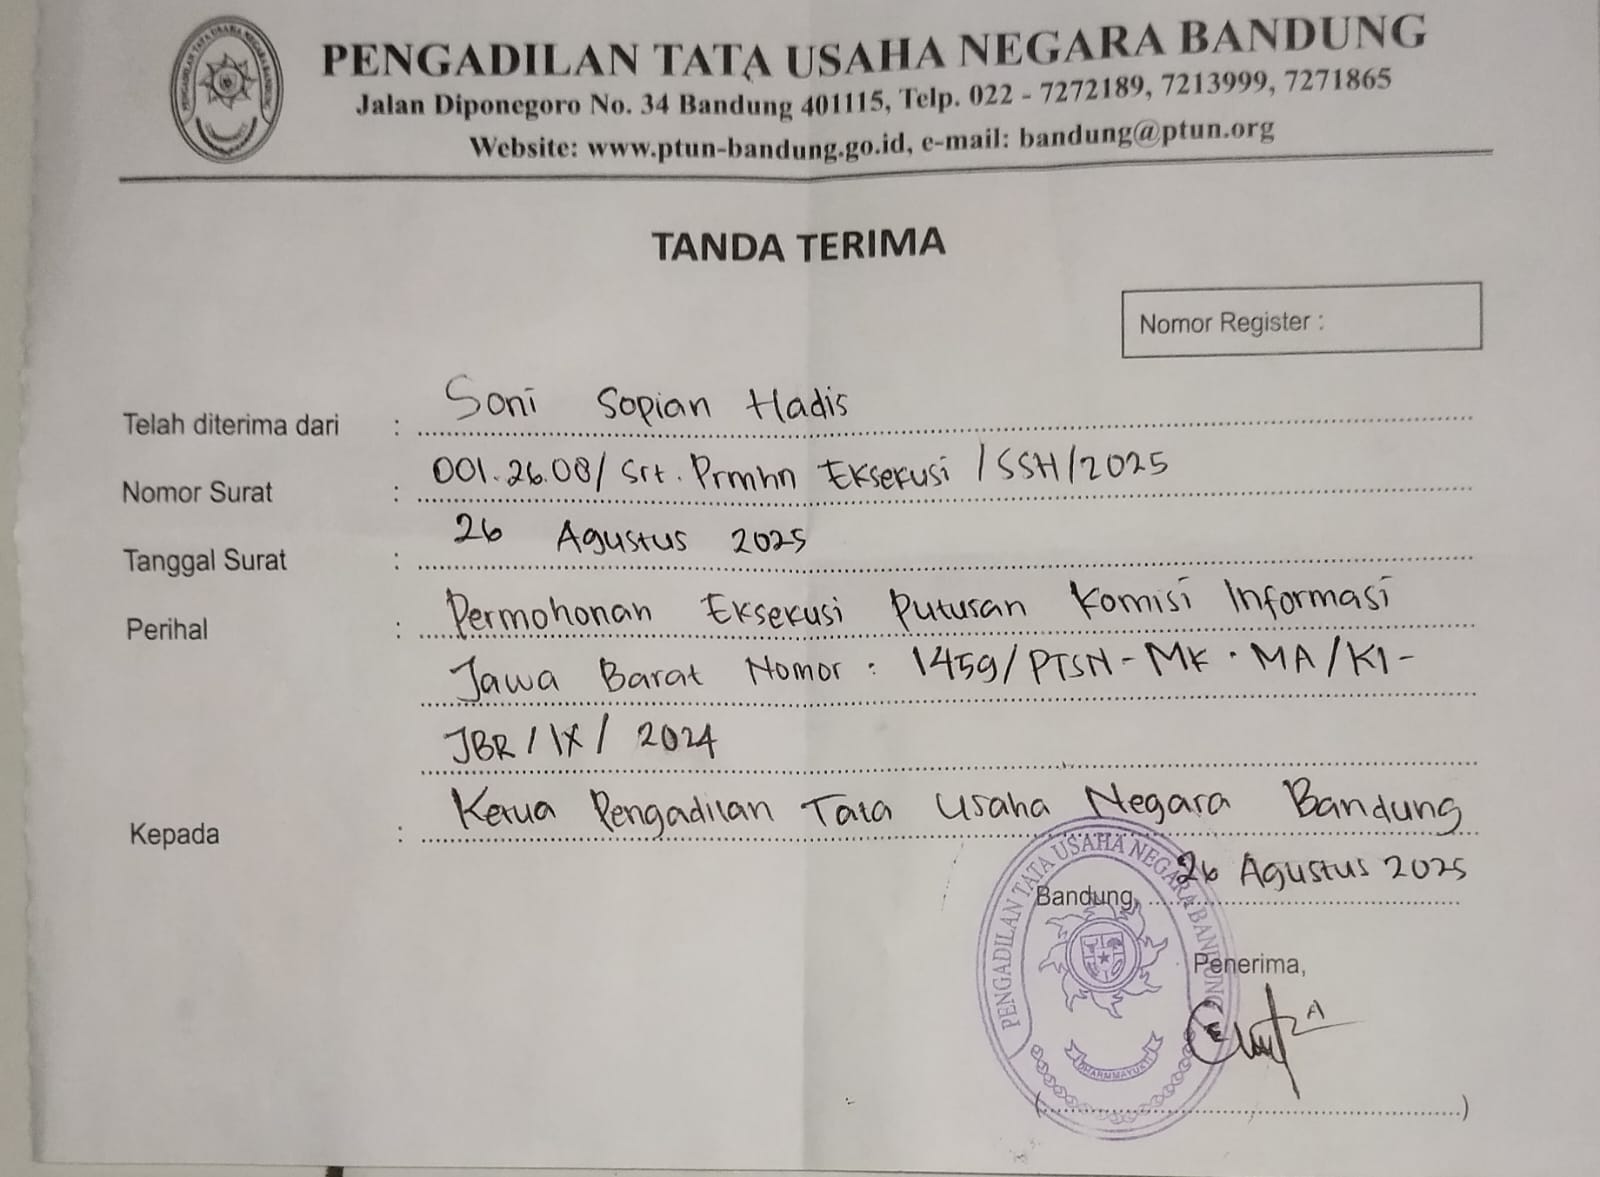 PENGADILAN TATA USAHA NEGARA BANDUNG
Jalan Diponegoro No. 34 Bandung 401115, Telp. 022 - 7272189, 7213999, 7271865
Website: www.ptun-bandung.go.id, e-mail: bandung@ptun.org
TANDA TERIMA
Nomor Register :
Telah diterima dari : Soni Sopian Hadis
Nomor Surat : 001.26.08/Srt.Prmhn Eksekusi/SSH/2025
Tanggal Surat : 26 Agustus 2025
Perihal : Permohonan Eksekusi Putusan Komisi Informasi
Jawa Barat Nomor : 1459/PTSN-MK.MA/KI-
JBR/IX/2024
Kepada : Ketua Pengadilan Tata Usaha Negara Bandung
Bandung, 26 Agustus 2025
PENGADILAN TATA USAHA NEGARA BANDUNG
Penerima,
DHARMMAYUKTI
(........................)